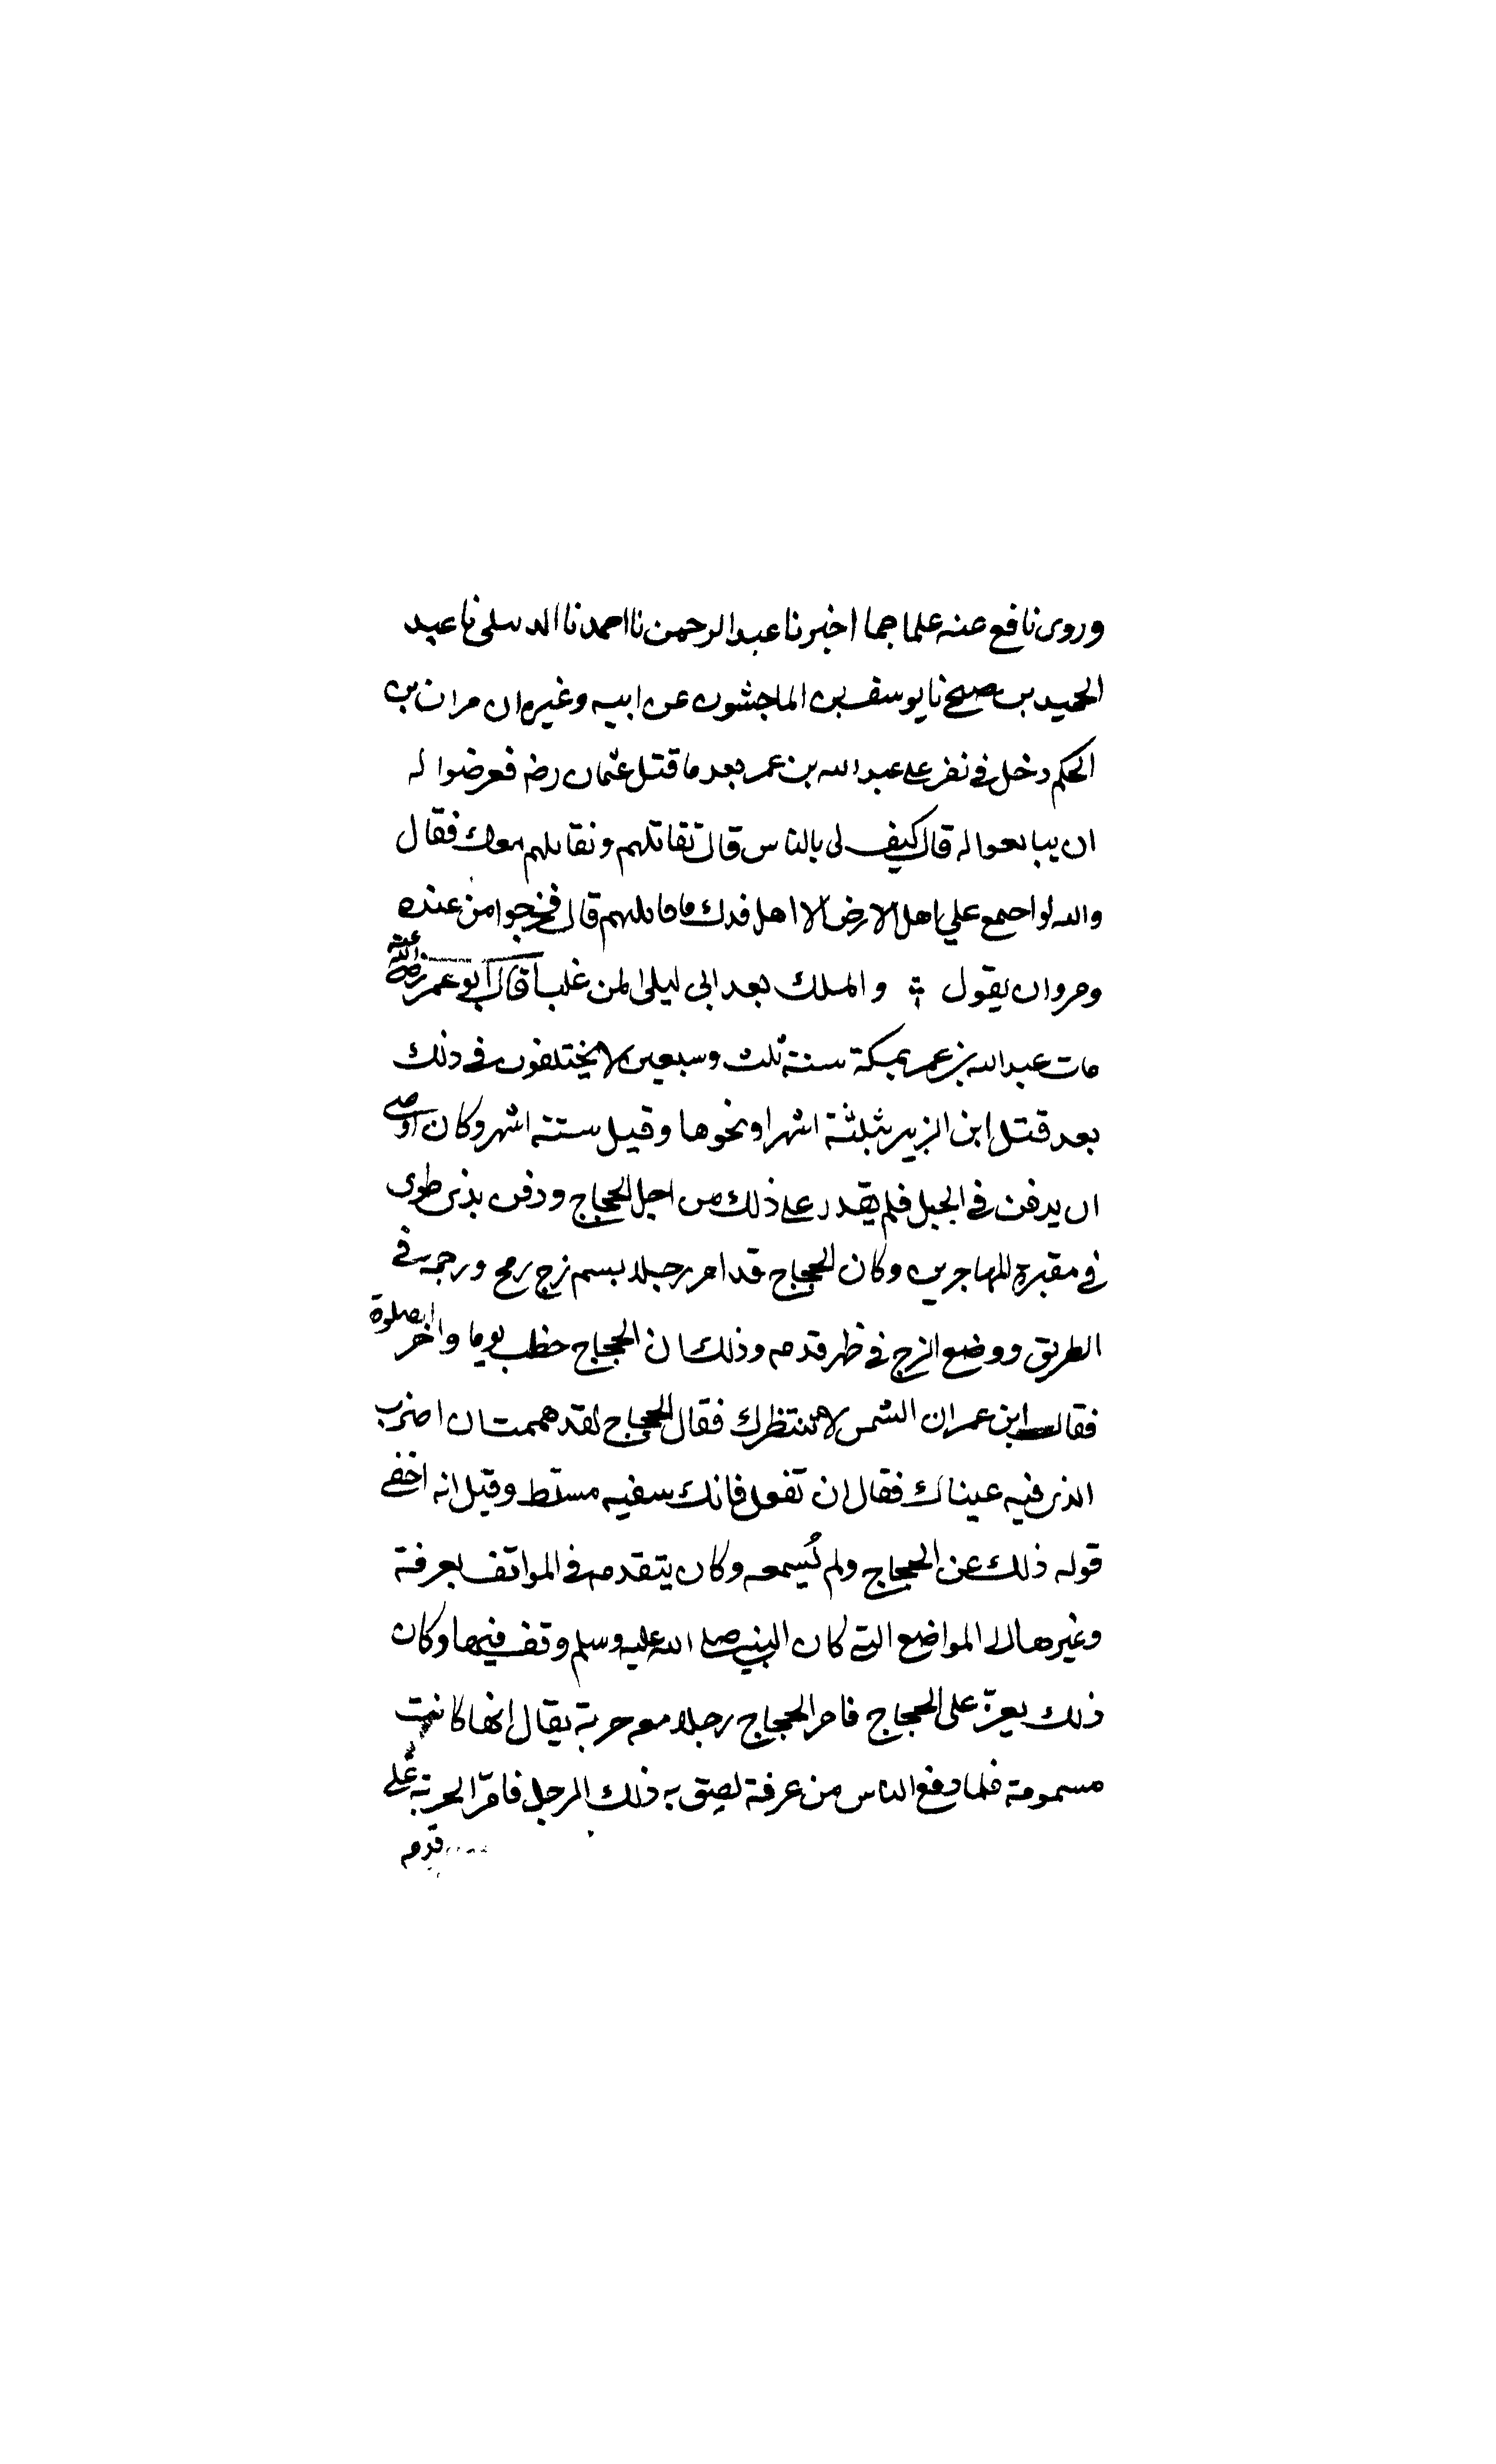 وروى نافع عنه علما جما اخبرنا عبد الرحمن نا احمد نا الديبلى نا عبد
الحميد بن صبيح نا يوسف بن الماجشون عن ابيه وغيره ان مروان بن
الحكم دخل فى نفر على عبد الله بن عمر بعد ما قتل عثمان رضه فعرضوا له
ان يبايعوا له قال كيف لى بالناس قال تقاتلهم ونقاتلهم معك فقال
والله لو اجتمع علي اهل الارض الا اهل فدك ما قاتلتهم قال فخرجوا من عنده
ومروان يقول والملك بعد ابى ليلى لمن غلبا قال ابو عمر رضى الله عنه
مات عبد الله بن عمر بمكة سنة ثلث وسبعين لا يختلفون فى ذلك
بعد قتل ابن الزبير بثلثة اشهر او نحوها وقيل ستة اشهر وكان اوصى
ان يدفن فى الجبل فلم يقدر على ذلك من اجل الحجاج ودفن بذى طوى
فى مقبرة المهاجرين وكان الحجاج قد امر رجلا بسم زج رمح ورجمه فى
الطريق ووضع الزج فى ظهر قدمه وذلك ان الحجاج خطب يوما واخر الصلوة
فقال ابن عمر ان الشمس لا تنتظرك فقال الحجاج لقد هممت ان اضرب
الذى فيه عيناك فقال ان تفعل فانك سفيه مسلط وقيل انه اخفى
قوله ذلك عن الحجاج ولم يُسمعه وكان يتقدمه فى المواقف بعرفة
وغيرها الى المواضع التى كان النبى صلى الله عليه وسلم وقف فيها وكان
ذلك يعزّ على الحجاج فامر الحجاج رجلا معه حربة يقال انها كانت
مسمومة فلما دفع الناس من عرفة لصق به ذلك الرجل فامرّ الحربة على
قدمه